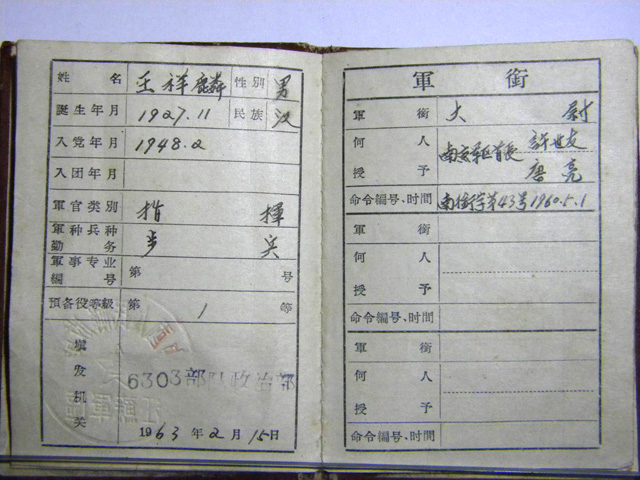 姓名 王祥麟 性别 男
誕生年月 1927.11 民族 汉
入党年月 1948.2
入团年月
軍官类别 指揮
軍种兵种勤务 步兵
軍事专业編号 第 号
預备役等級 第 1 等
填发机关 6303部队政治部
1963年2月15日
軍銜
軍銜 大尉
何人授予 南京軍区首長 許世友 唐亮
命令編号、时间 南銜字第43号1960.5.1
軍銜
何人
授予
命令編号、时间
軍銜
何人
授予
命令編号、时间